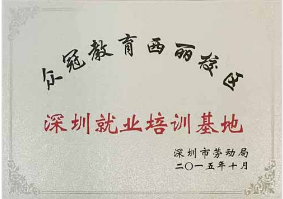 众冠教育西丽校区
深圳就业培训基地
深圳市劳动局
二〇一五年十月